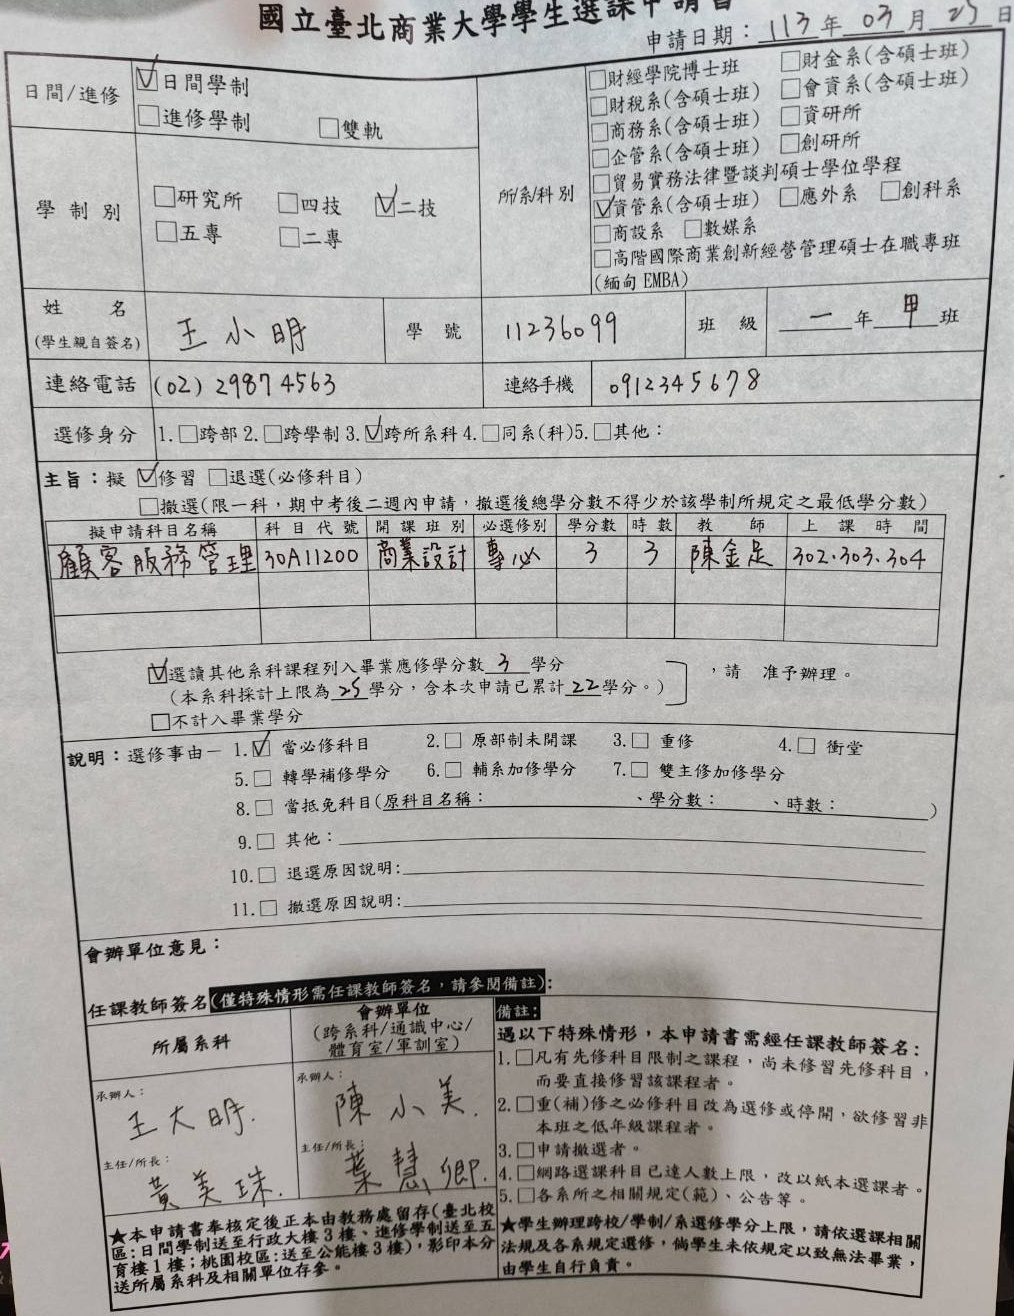 國立臺北商業大學學生選課申請書
申請日期：113年03月25日
日間/進修 ☑日間學制
□進修學制 □雙軌
學制別 □研究所 □四技 ☑二技
□五專 □二專
所/系/科別 □財經學院博士班 □財金系(含碩士班)
□財稅系(含碩士班) □會資系(含碩士班)
□商務系(含碩士班) □資研所
□企管系(含碩士班) □創研所
□貿易實務法律暨談判碩士學位學程
☑資管系(含碩士班) □應外系 □創科系
□商設系 □數媒系
□高階國際商業創新經營管理碩士在職專班
(緬甸 EMBA)
姓名 (學生親自簽名) 王小明 學號 11236099 班級 一年甲班
連絡電話 (02) 29874563 連絡手機 0912345678
選修身分 1.□跨部 2.□跨學制 3.☑跨所系科 4.□同系(科)5.□其他：
主旨：擬 ☑修習 □退選(必修科目)
□撤選(限一科，期中考後二週內申請，撤選後總學分數不得少於該學制所規定之最低學分數)
擬申請科目名稱 科目代號 開課班別 必選修別 學分數 時數 教師 上課時間
顧客服務管理 30A11200 商業設計 專必 3 3 陳金足 302.303.304
☑選讀其他系科課程列入畢業應修學分數 3 學分
(本系科採計上限為 25 學分，含本次申請已累計 22 學分。) ，請 准予辦理。
□不計入畢業學分
說明：選修事由－ 1.☑ 當必修科目 2.□ 原部制未開課 3.□ 重修 4.□ 衝堂
5.□ 轉學補修學分 6.□ 輔系加修學分 7.□ 雙主修加修學分
8.□ 當抵免科目(原科目名稱： 、學分數： 、時數： )
9.□ 其他：
10.□ 退選原因說明:
11.□ 撤選原因說明:
會辦單位意見：
任課教師簽名(僅特殊情形需任課教師簽名，請參閱備註)：
所屬系科
會辦單位
(跨系科/通識中心/
體育室/軍訓室)
承辦人：
王大明.
主任/所長：
黃美珠.
承辦人：
陳小美.
主任/所長：
葉慧卿.
備註:
遇以下特殊情形，本申請書需經任課教師簽名:
1.□凡有先修科目限制之課程，尚未修習先修科目，
而要直接修習該課程者。
2.□重(補)修之必修科目改為選修或停開，欲修習非
本班之低年級課程者。
3.□申請撤選者。
4.□網路選課科目已達人數上限，改以紙本選課者。
5.□各系所之相關規定(範)、公告等。
★本申請書奉核定後正本由教務處留存(臺北校
區:日間學制送至行政大樓3樓、進修學制送至五
育樓1樓；桃園校區:送至公能樓3樓)，影印本分
送所屬系科及相關單位存參。
★學生辦理跨校/學制/系選修學分上限，請依選課相關
法規及各系規定選修，倘學生未依規定以致無法畢業，
由學生自行負責。